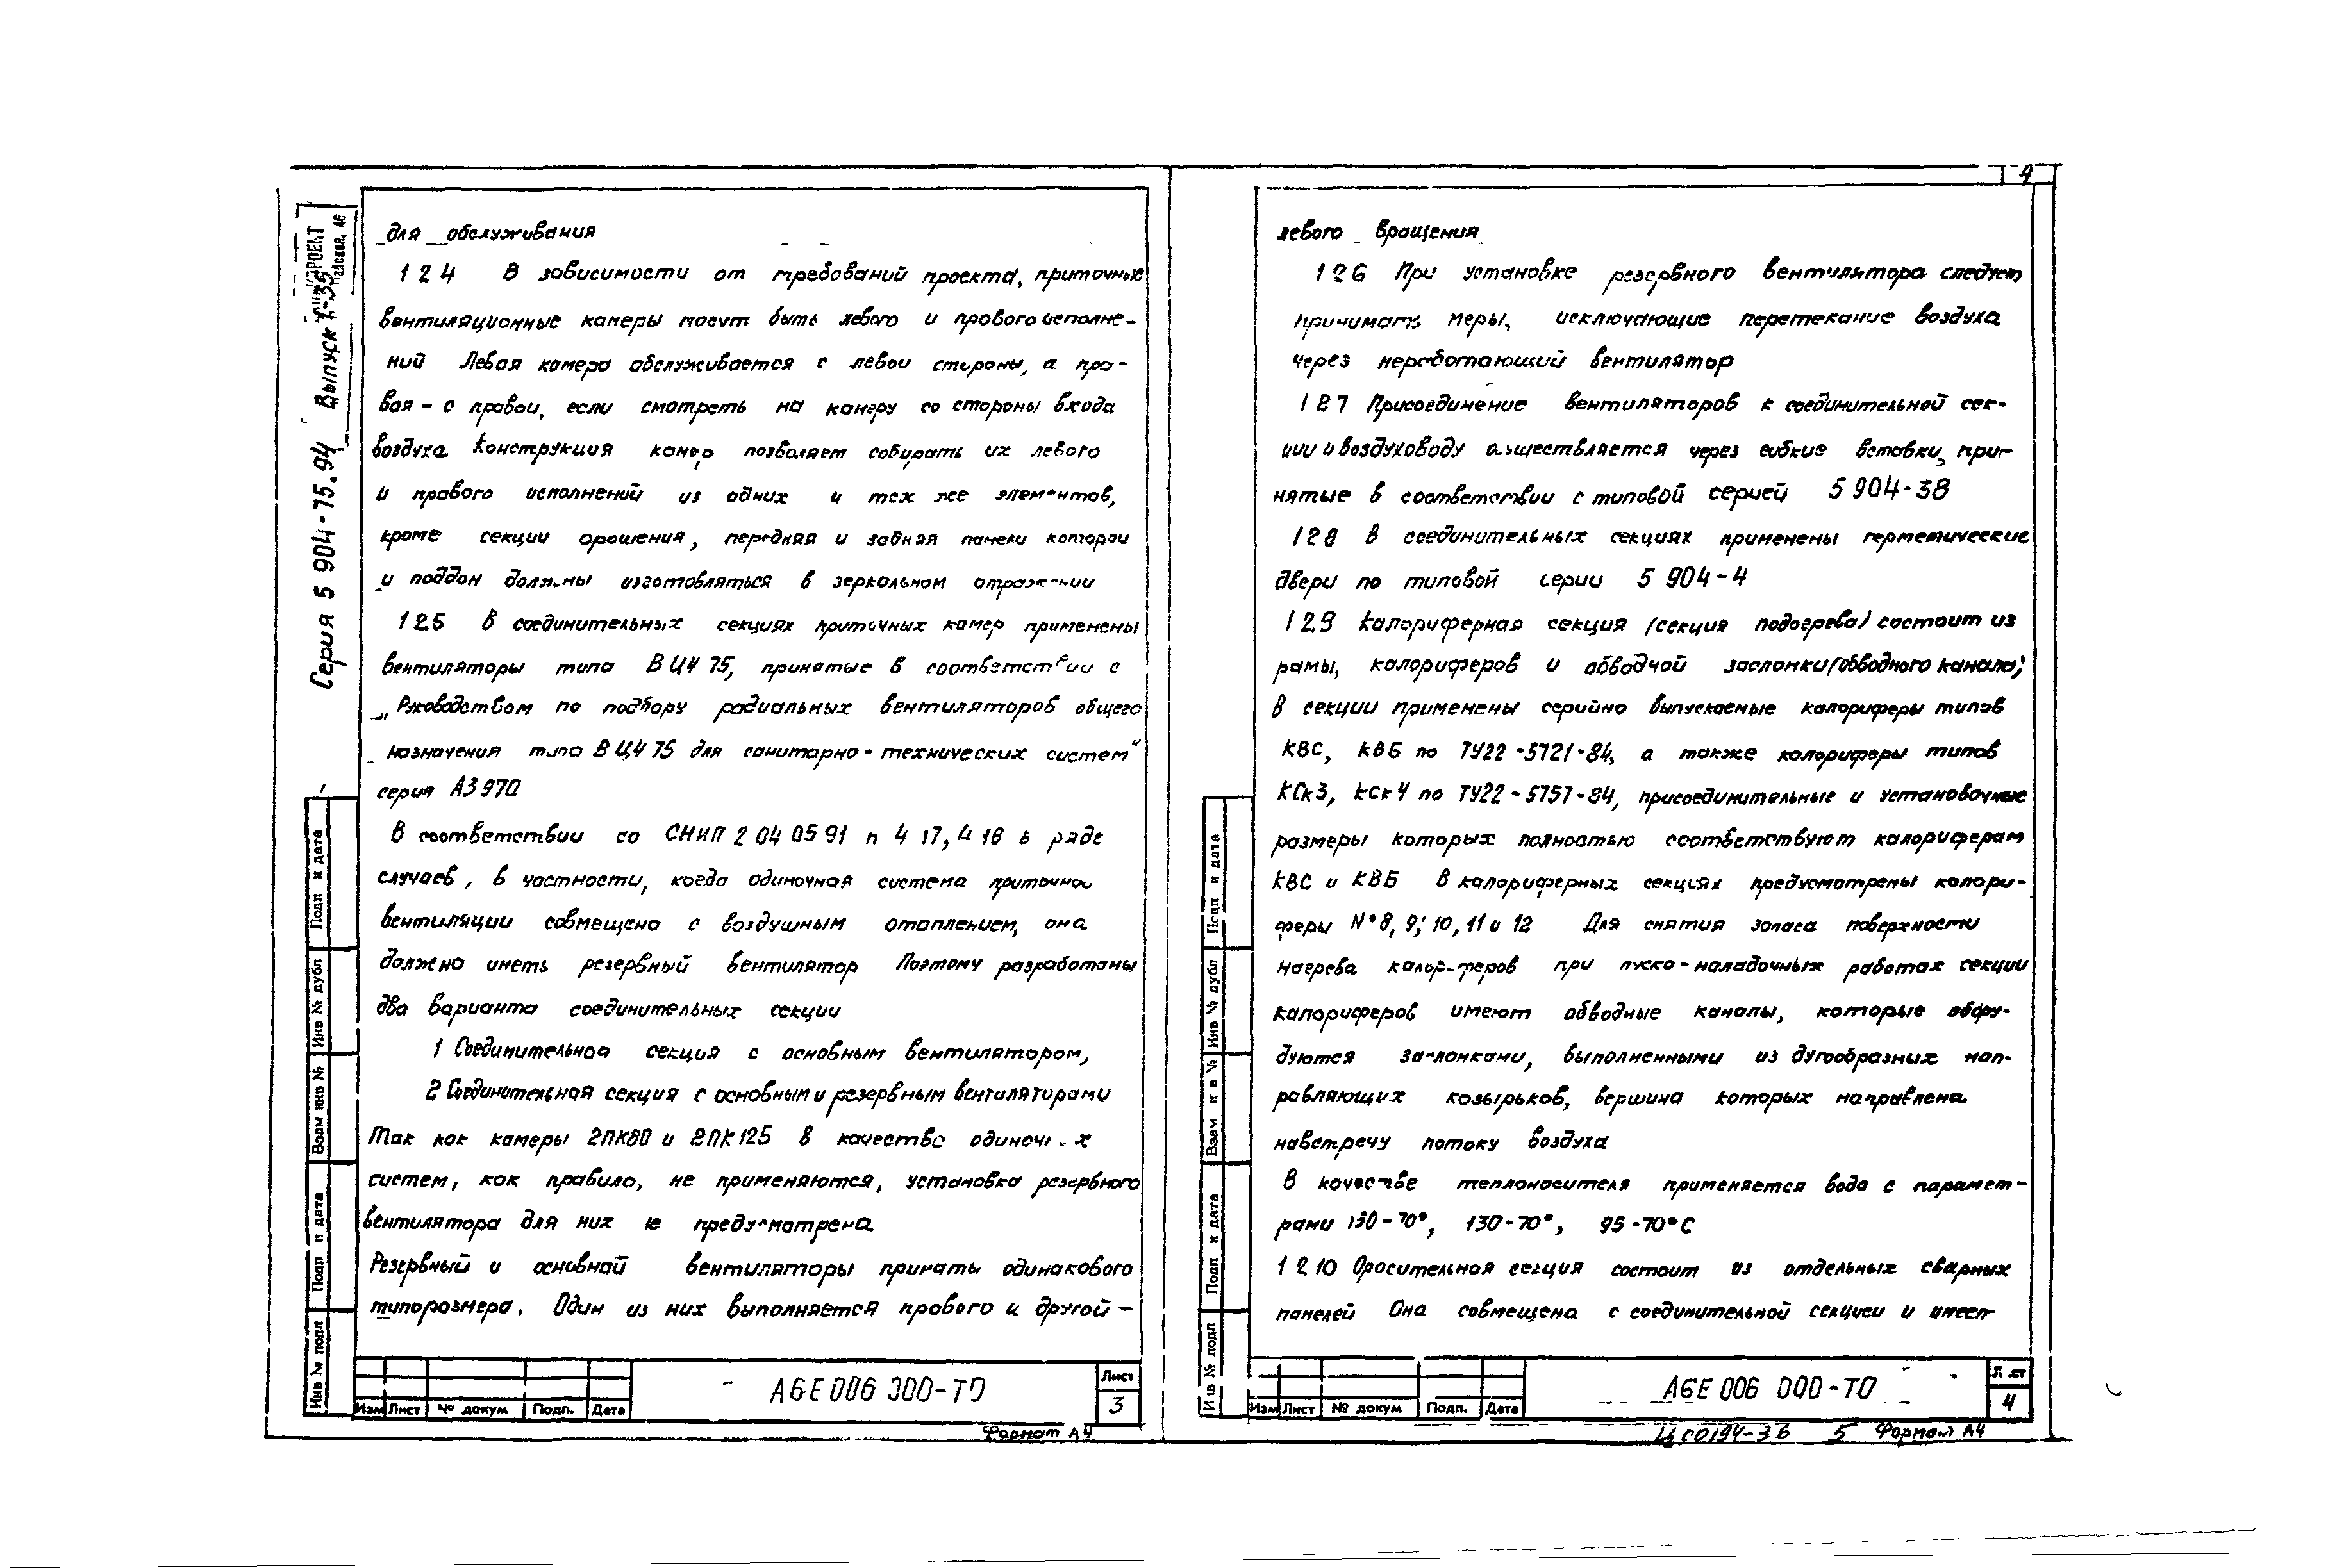 для обслуживания
1 2 4 В зависимости от требований проекта, приточные
вентиляционные камеры могут быть левого и правого исполне-
ний Левая камера обслуживается с левой стороны, а пра-
вая - с правой, если смотреть на камеру со стороны входа
воздуха Конструкция камер позволяет собирать их левого
и правого исполнений из одних и тех же элементов,
кроме секции орошения, передняя и задняя панели которой
и поддон должны изготовляться в зеркальном отражении
1 2.5 В соединительных секциях приточных камер применены
вентиляторы типа В Ц4 75, принятые в соответствии с
„Руководством по подбору радиальных вентиляторов общего
назначения типа В Ц4 75 для санитарно-технических систем"
серия А3 970
В соответствии со СНИП 2 04 05 91 п 4 17, 4 18 в ряде
случаев, в частности, когда одиночная система приточной
вентиляции совмещена с воздушным отоплением, она
должна иметь резервный вентилятор Поэтому разработаны
два варианта соединительных секции
1 Соединительная секция с основным вентилятором,
2 Соединительная секция с основным и резервным вентиляторами
Так как камеры 2ПК80 и 2ПК125 в качестве одиночных
систем, как правило, не применяются, установка резервного
вентилятора для них не предусмотрена
Резервный и основной вентиляторы приняты одинакового
типоразмера. Один из них выполняется правого и другой -
Серия 5 904-75.94 Выпуск
Инв № подл Подп и дата Взам инв № Инв № дубл Подп и дата
Изм Лист № докум Подп. Дата
А6Е 006 000-ТО
Лист
3
Формат А4
4
левого вращения
1 2 6 При установке резервного вентилятора следует
принимать меры, исключающие перетекание воздуха
через неработающий вентилятор
1 2 7 Присоединение вентиляторов к соединительной сек-
ции и воздуховоду осуществляется через гибкие вставки, при-
нятые в соответствии с типовой серией 5 904-38
1 2 8 В соединительных секциях применены герметические
двери по типовой серии 5 904-4
1 2.9 Калориферная секция (секция подогрева) состоит из
рамы, калориферов и обводной заслонки (обводного канала;
В секции применены серийно выпускаемые калориферы типов
КВС, КВБ по ТУ22-5721-84, а также калориферы типов
КСк3, КСк4 по ТУ22-5757-84, присоединительные и установочные
размеры которых полностью соответствуют калориферам
КВС и КВБ В калориферных секциях предусмотрены калори-
феры №8, 9; 10, 11 и 12 Для снятия запаса поверхности
нагрева калориферов при пуско-наладочных работах секции
калориферов имеют обводные каналы, которые обору-
дуются заслонками, выполненными из дугообразных нап-
равляющих козырьков, вершина которых направлена
навстречу потоку воздуха
В качестве теплоносителя применяется вода с парамет-
рами 150-70°, 130-70°, 95-70°С
1 2.10 Оросительная секция состоит из отдельных сварных
панелей Она совмещена с соединительной секцией и имеет
Инв № подл Подп и дата Взам и в № Инв № дубл Подп и дата
Изм Лист № докум Подп. Дата
А6Е 006 000-ТО
Лист
4
5 Формат А4